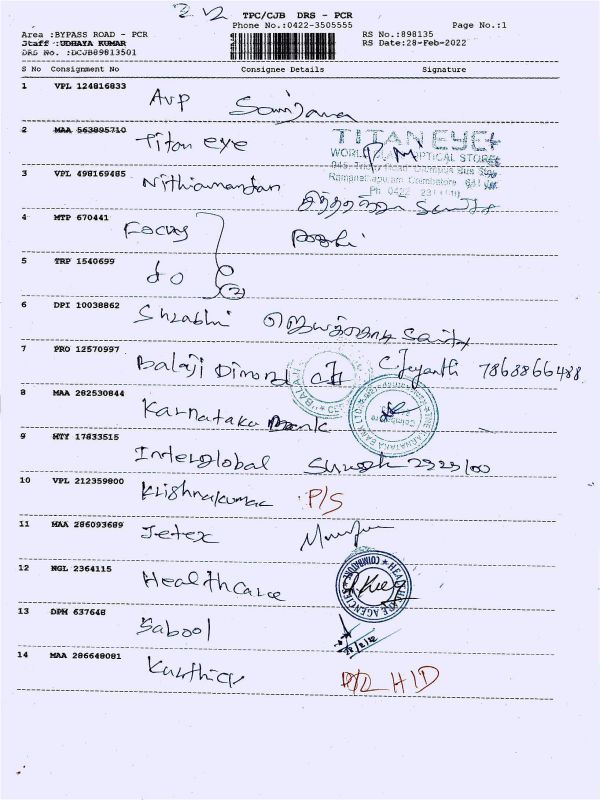 2 1/2
TPC/CJB DRS - PCR
Phone No.:0422-3505555 Page No.:1
Area :BYPASS ROAD - PCR RS No.:898135
Staff :UDHAYA KUMAR RS Date:28-Feb-2022
DRS No. :DCJB89813501
S No Consignment No Consignee Details Signature
1 VPL 124816833
AVP
2 MAA 563895710
Titan eye
TITAN EYE+
OPTICAL STORES
3 VPL 498169485
Nithianandan
Ramanathapuram Coimbatore
Ph 0422
4 MTP 670441
Focus
5 TRP 1540699
do
2
6 DPI 10038862
Shrabhi
7 PRO 12570997
Balaji Dimond C. Jeyanthi 7868866488
8 MAA 282530844
Karnataka Bank
KARNATAKA BANK LTD
Coimbatore
9 MTY 17833515
Interglobal
10 VPL 212359800
Krishnakumar P/S
11 MAA 286093689
Jetex
12 NGL 2364115
Healthcare
HEALTHCARE AGENCIES
COIMBATORE
13 DPH 637648
Sabool
14 MAA 286648081
Karthick H/D